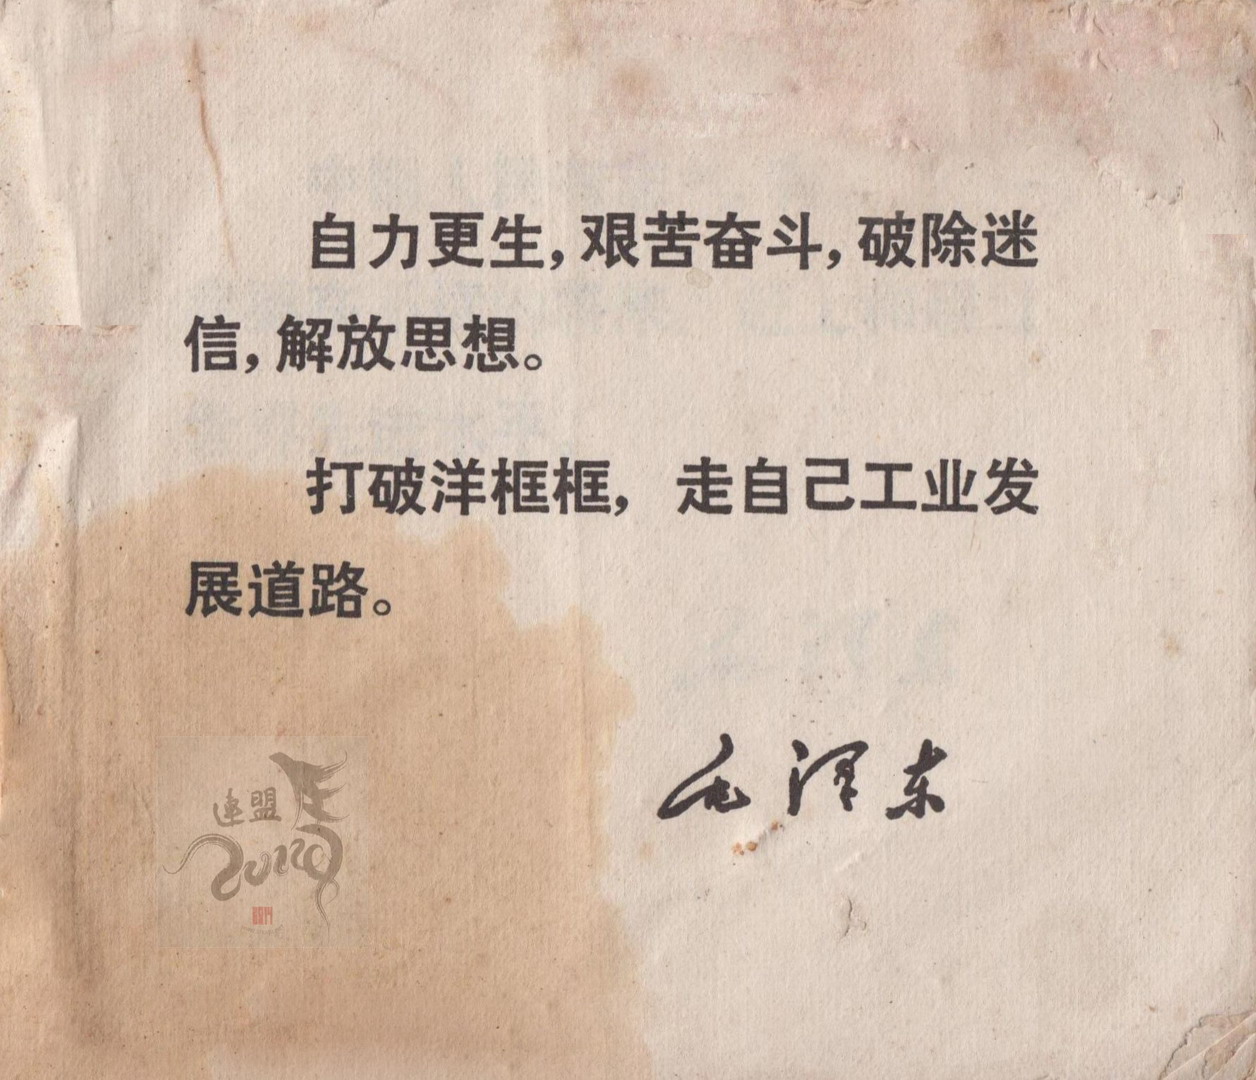 自力更生，艰苦奋斗，破除迷
信，解放思想。
打破洋框框，走自己工业发
展道路。
毛泽东
連盟